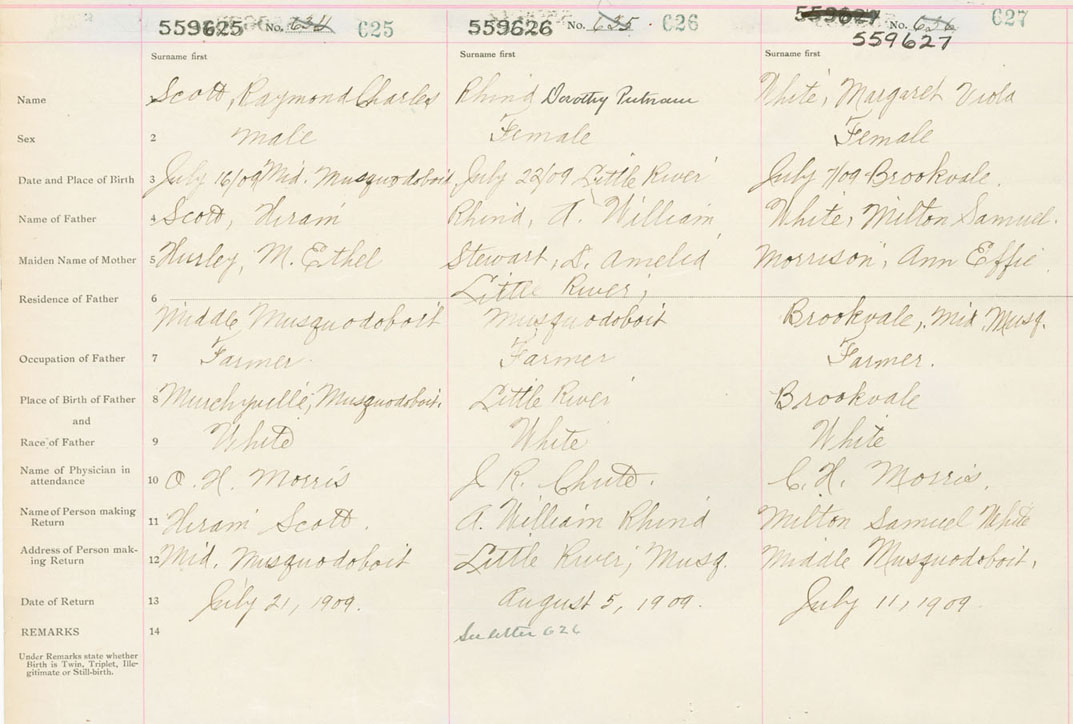 559625 No. 634 C25 559626 No. 635 C26 559627 No. 636 C27
559627
Surname first Surname first Surname first
Name Scott, Raymond Charles Rhind Dorothy Putnam White, Margaret Viola
Sex 2 Male Female Female
Date and Place of Birth 3 July 16/09 Mid. Musquodoboit July 22/09 Little River July 7/09 Brookvale.
Name of Father 4 Scott, Hiram Rhind, A. William White, Milton Samuel.
Maiden Name of Mother 5 Hurley, M. Ethel Stewart, Amelia Morrison, Ann Effie.
Residence of Father 6 Little River,
Middle Musquodoboit Musquodoboit Brookvale, Mid. Musq.
Occupation of Father 7 Farmer Farmer Farmer.
Place of Birth of Father 8 Murchyville, Musquodoboit. Little River Brookvale
and
Race of Father 9 White White White
Name of Physician in
attendance 10 H. Morris J. R. Chute. C. H. Morris.
Name of Person making
Return 11 Hiram Scott. A. William Rhind Milton Samuel White
Address of Person mak-
ing Return 12 Mid. Musquodoboit Little River, Musq. Middle Musquodoboit.
Date of Return 13 July 21, 1909. August 5, 1909. July 11, 1909.
REMARKS 14 See letter 626
Under Remarks state whether
Birth is Twin, Triplet, Ille-
gitimate or Still-birth.